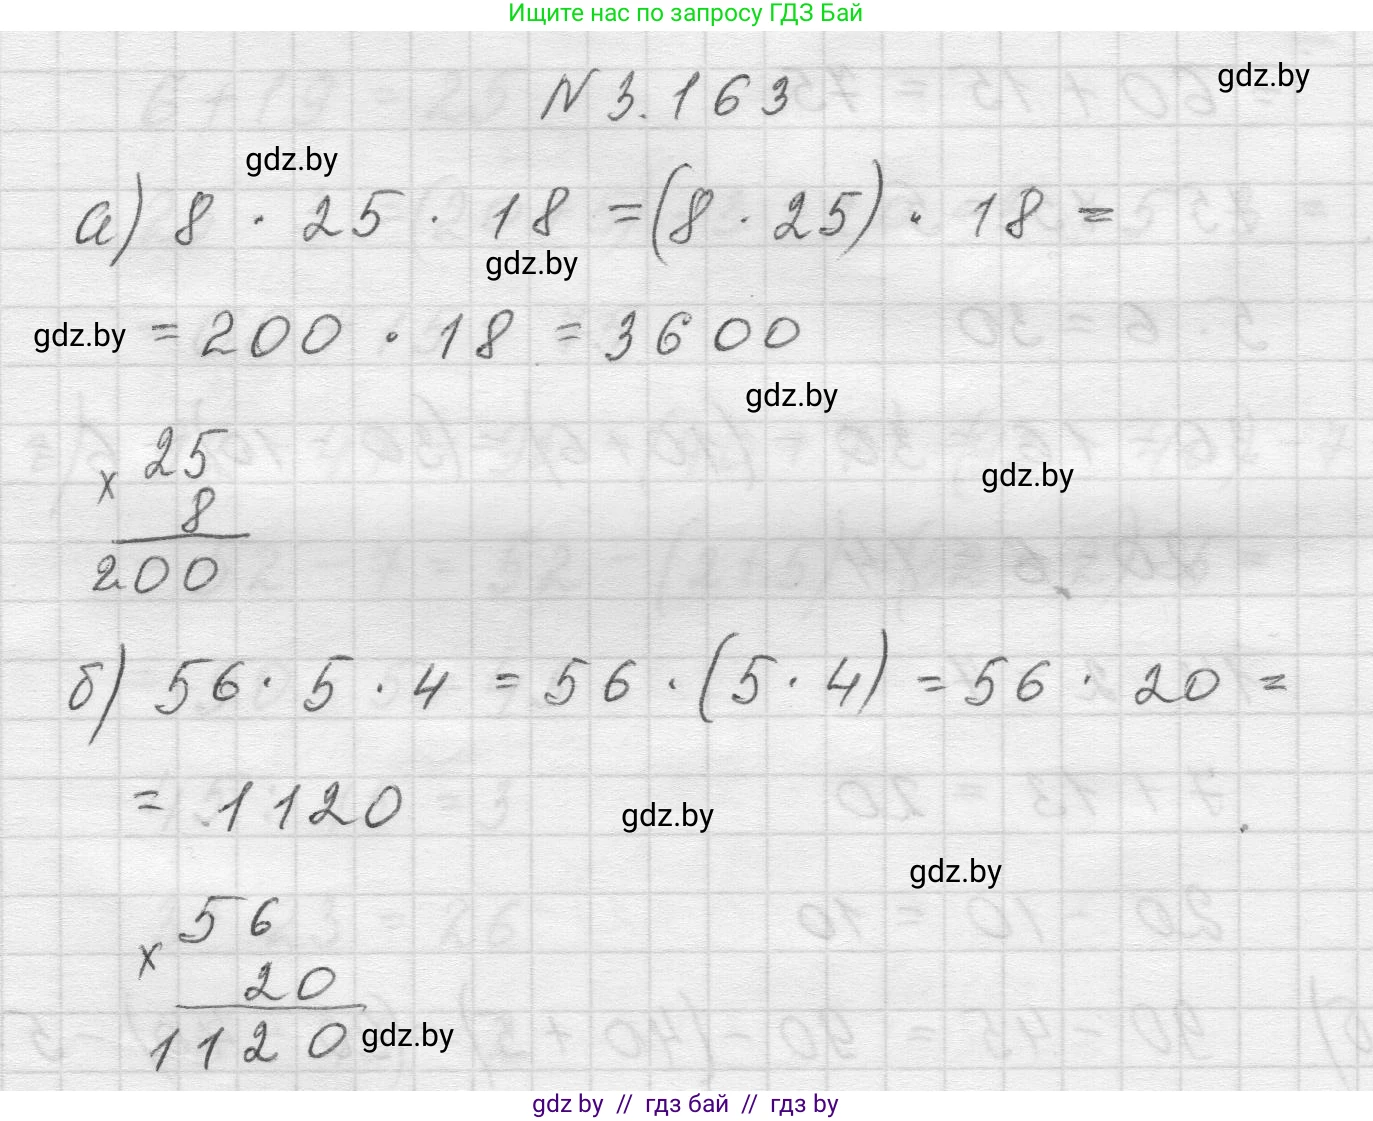 Ищите нас по запросу ГДЗ Бай
N 3.163
gdz.by
gdz.by
а) 8 · 25 · 18 = (8 · 25) · 18 =
gdz.by
gdz.by
= 200 · 18 = 3600
gdz.by
25
× 8
200
gdz.by
б) 56 · 5 · 4 = 56 · (5 · 4) = 56 · 20 =
= 1120
gdz.by
gdz.by
56
× 20
1120
gdz.by
gdz by // гдз бай // гдз by